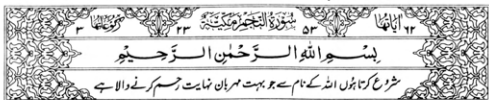 اٰیَاتُهَا ٦٢ ٥٣ سُوْرَةُ النَّجْمِ مَكِّيَّةٌ ٢٣ رُكُوْعَاتُهَا ٣
بِسْمِ اللهِ الرَّحْمٰنِ الرَّحِيْمِ
شروع کرتا ہوں اللہ کے نام سے جو بہت مہربان نہایت رحم کرنے والا ہے